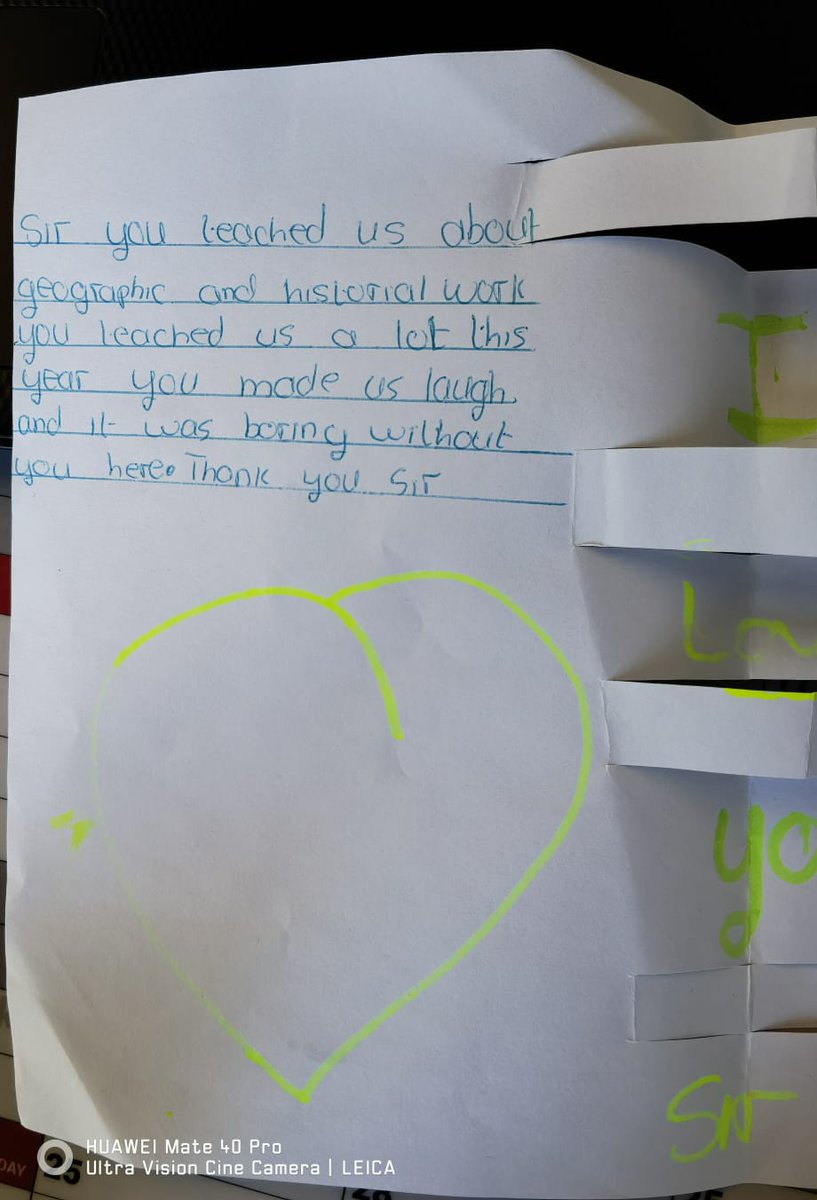 Sir you teached us about
geographic and historial work
you teached us a lot this
year you made us laugh.
and it was boring without
you here. Thank you Sir
I
yo
Sir
HUAWEI Mate 40 Pro
Ultra Vision Cine Camera | LEICA
DAY
25